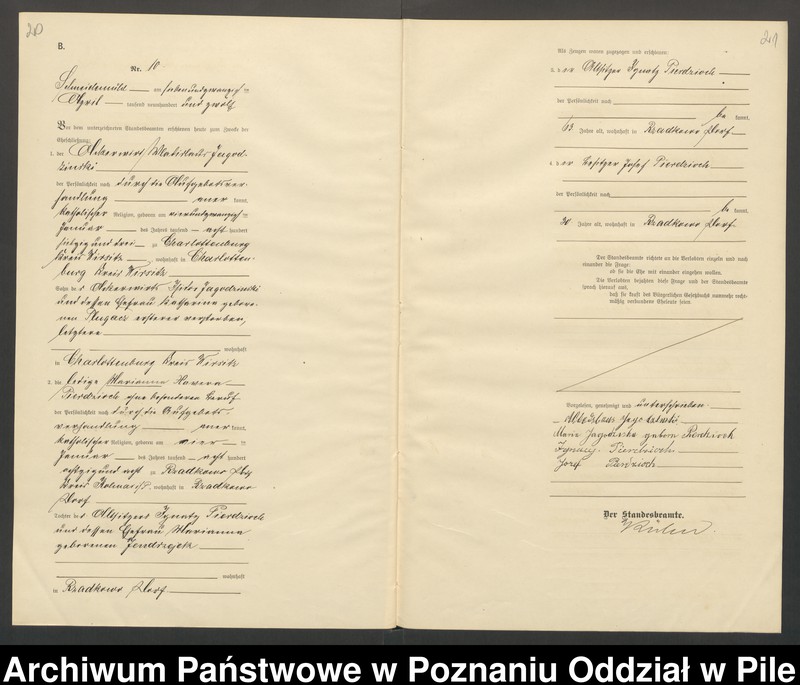 20
B.
Nr. 10
Schneidemühl am siebenundzwanzig ten
April tausend neunhundert und zwölf
Vor dem unterzeichneten Standesbeamten erschienen heute zum Zwecke der
Eheschließung:
1. der Ackerwirt Wladislaus Jagod-
zinski
der Persönlichkeit nach durch die Aufgebotsver-
handlung aner kannt,
katholischer Religion, geboren am vierundzwanzig ten
Januar des Jahres tausend acht hundert
und drei zu Charlottenburg
Kreis Wirsitz, wohnhaft in Charlotten-
burg Kreis Wirsitz
Sohn des Ackerwirts Isidor Jagodzinski
und dessen Ehefrau Katharina gebore-
nen Slugacz ersterer verstorben,
letztere
wohnhaft
in Charlottenburg Kreis Wirsitz
2. die ledige Marianna
Pierdzioch ohne besonderen Beruf
der Persönlichkeit nach durch die Aufgebots-
verhandlung aner kannt,
katholischer Religion, geboren am vier ten
Januar des Jahres tausend acht hundert
achtzig und acht zu Rzadkowo Dorf
Kreis Kolmar i/P., wohnhaft in Rzadkowo
Dorf
Tochter des Altsitzers Ignatz Pierdzioch
und dessen Ehefrau Marianna
geborenen Jendrzejek
wohnhaft
in Rzadkowo Dorf
21
Als Zeugen waren zugezogen und erschienen:
3. der Altsitzer Ignatz Pierdzioch
der Persönlichkeit nach
be kannt,
63 Jahre alt, wohnhaft in Rzadkowo Dorf
4. der Besitzer Josef Pierdzioch
der Persönlichkeit nach
be kannt,
30 Jahre alt, wohnhaft in Rzadkowo Dorf
Der Standesbeamte richtete an die Verlobten einzeln und nach
einander die Frage:
ob sie die Ehe mit einander eingehen wollen.
Die Verlobten bejahten diese Frage und der Standesbeamte
sprach hierauf aus,
daß sie kraft des Bürgerlichen Gesetzbuchs nunmehr recht-
mäßig verbundene Eheleute seien.
Vorgelesen, genehmigt und unterschrieben.
Maria Jagodzinska geborn
Ignacy Pierdzioch
Jozef Pierdzioch
Der Standesbeamte.
Archiwum Państwowe w Poznaniu Oddział w Pile